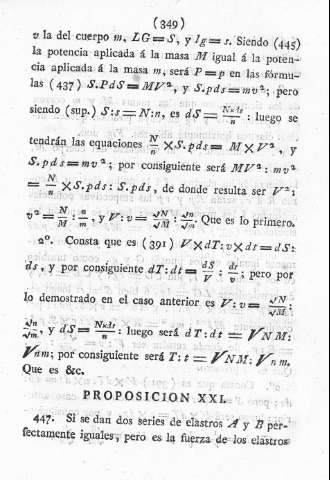 (349)
v la del cuerpo m, LG=S, y lg=s. Siendo (445)
la potencia aplicada á la masa M igual á la poten-
cia aplicada á la masa m, será P=p en las fórmu-
las (437) S.PdS=MV², y S.pds=mv²; pero
siendo (sup.) S:s=N:n, es dS= N×ds/n : luego se
tendrán las equaciones N/n ×S.pds= M×V², y
S.pds=mv²; por consiguiente será MV²: mv²
= N/n ×S.pds: S.pds, de donde resulta ser V²:
v²= N/M : n/m, y V:v= √N/√M : √n/√m. Que es lo primero.
2º. Consta que es (391) V×dT:v×dt=dS:
ds, y por consiguiente dT:dt= dS/V : ds/v; pero por
lo demostrado en el caso anterior es V:v= √N/√M :
√n/√m, y dS= N×ds/n : luego será dT:dt=√NM:
√nm; por consiguiente será T:t=√NM:√nm.
Que es &c.
PROPOSICION XXI.
447. Si se dan dos series de elastros A y B per-
fectamente iguales, pero es la fuerza de los elastros